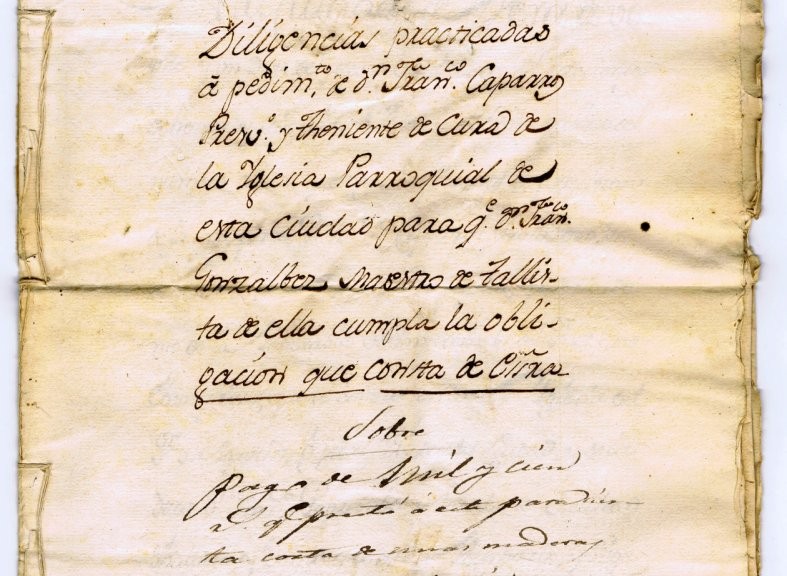 Diligencias practicadas
á pedim.to de d.n Fran.co Caparros
Presv.o y Theniente de Cura de
la Yglesia Parroquial de
esta Ciudad para q.e d.n Fran.co
Gonzalbez Maestro de Tallis-
ta de ella cumpla la obli-
gacion que consta de Esc̃ra
Sobre
pago de Mil y cien
r.s q.e prestó á este para
ta de unas maderas